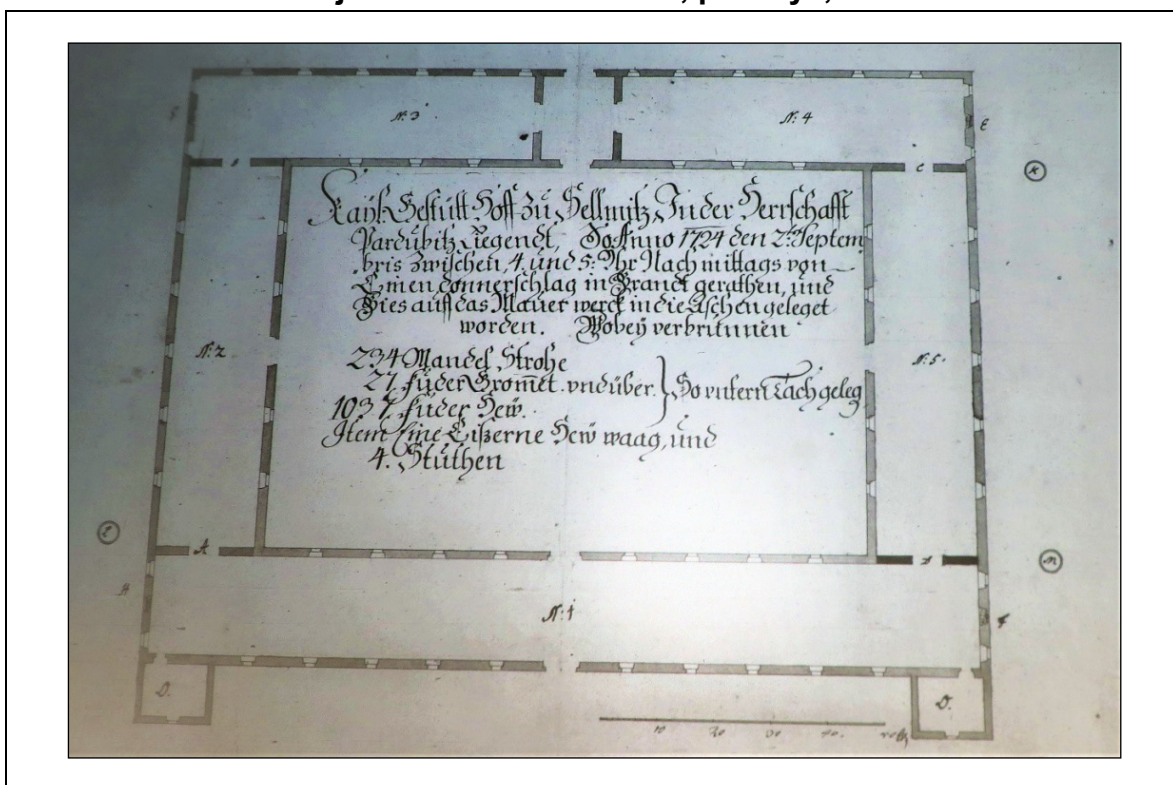 N: 3
N: 4
E
C
K
Kaÿß Gestütt Hoff zu Sellmitz In der Herrschafft
Pardubitz Liegendt, So Anno 1724 den 2: Septem
bris zwischen 4. und 5: Uhr Nachmittags von
Einen donnerschlag in Brandt gerathen, und
Bies auff das Mauer werck in die Aschen geleget
worden. Wobeÿ verbrunnen
N: 2
N: 5
234 Mandel Strohe
27. füder Gromet. vnd über.
So vntern Tach geleg
103 7. füder Hew.
Item Eine Eißerne Hew waag, und
4. Stüthen
A
N: 1
D.
D.
10 20 30 40